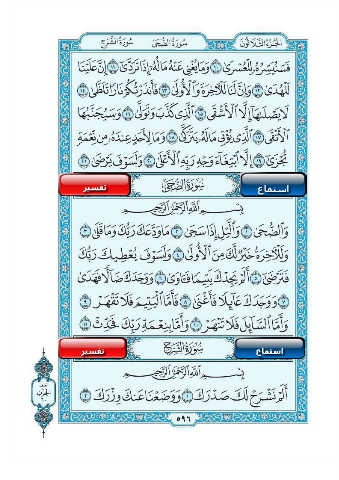 الجزء الثلاثون سورة الضحى سورة الشرح
فَسَنُيَسِّرُهُ لِلْعُسْرَىٰ ١٠ وَمَا يُغْنِي عَنْهُ مَالُهُ إِذَا تَرَدَّىٰ ١١ إِنَّ عَلَيْنَا
لَلْهُدَىٰ ١٢ وَإِنَّ لَنَا لَلْآخِرَةَ وَالْأُولَىٰ ١٣ فَأَنذَرْتُكُمْ نَارًا تَلَظَّىٰ ١٤
لَا يَصْلَاهَا إِلَّا الْأَشْقَى ١٥ الَّذِي كَذَّبَ وَتَوَلَّىٰ ١٦ وَسَيُجَنَّبُهَا
الْأَتْقَى ١٧ الَّذِي يُؤْتِي مَالَهُ يَتَزَكَّىٰ ١٨ وَمَا لِأَحَدٍ عِندَهُ مِن نِّعْمَةٍ
تُجْزَىٰ ١٩ إِلَّا ابْتِغَاءَ وَجْهِ رَبِّهِ الْأَعْلَىٰ ٢٠ وَلَسَوْفَ يَرْضَىٰ ٢١
استماع سورة الضحى تفسير
بِسْمِ اللَّهِ الرَّحْمَٰنِ الرَّحِيمِ
وَالضُّحَىٰ ١ وَاللَّيْلِ إِذَا سَجَىٰ ٢ مَا وَدَّعَكَ رَبُّكَ وَمَا قَلَىٰ ٣
وَلَلْآخِرَةُ خَيْرٌ لَّكَ مِنَ الْأُولَىٰ ٤ وَلَسَوْفَ يُعْطِيكَ رَبُّكَ
فَتَرْضَىٰ ٥ أَلَمْ يَجِدْكَ يَتِيمًا فَآوَىٰ ٦ وَوَجَدَكَ ضَالًّا فَهَدَىٰ
٧ وَوَجَدَكَ عَائِلًا فَأَغْنَىٰ ٨ فَأَمَّا الْيَتِيمَ فَلَا تَقْهَرْ ٩
وَأَمَّا السَّائِلَ فَلَا تَنْهَرْ ١٠ وَأَمَّا بِنِعْمَةِ رَبِّكَ فَحَدِّثْ ١١
استماع سورة الشرح تفسير
بِسْمِ اللَّهِ الرَّحْمَٰنِ الرَّحِيمِ
أَلَمْ نَشْرَحْ لَكَ صَدْرَكَ ١ وَوَضَعْنَا عَنكَ وِزْرَكَ ٢
٥٩٦